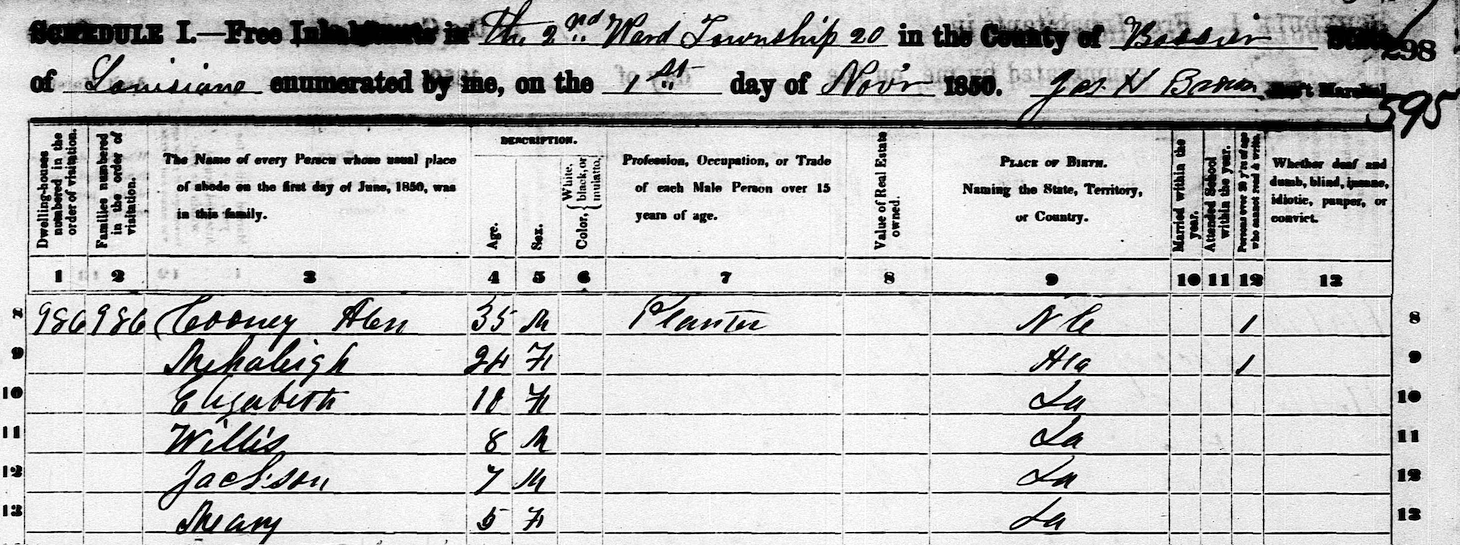 SCHEDULE I.—Free Inhabitants in the 2nd Ward Township 20 in the County of Bossier State
298
of Louisiana enumerated by me, on the 1st day of Nov'r 1850. Jas. H Brown Ass't Marshal
595
Dwelling-houses numbered in the order of visitation.
Families numbered in the order of visitation.
The Name of every Person whose usual place
of abode on the first day of June, 1850, was
in this family.
DESCRIPTION.
Age.
Sex.
Color, { White, black, or mulatto.
Profession, Occupation, or Trade
of each Male Person over 15
years of age.
Value of Real Estate owned.
PLACE OF BIRTH.
Naming the State, Territory,
or Country.
Married within the year.
Attended School within the year.
Persons over 20 y'rs of age who cannot read & write.
Whether deaf and
dumb, blind, insane,
idiotic, pauper, or
convict.
1 2 3 4 5 6 7 8 9 10 11 12 13
8 986 986 Cooney Alen 35 M Planter N C 1 8
9 Mehaleigh 24 F Ala 1 9
10 Elizabeth 10 F La 10
11 Willis 8 M La 11
12 Jackson 7 M La 12
13 Meary 5 F La 13